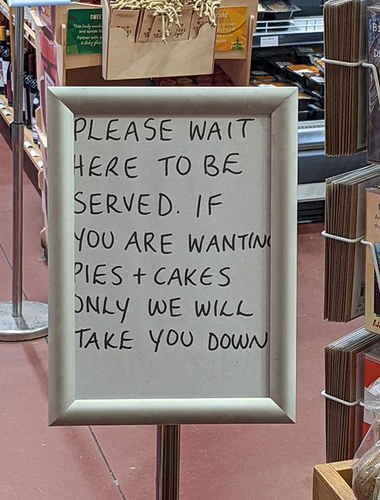 SWEE
PLEASE WAIT
HERE TO BE
SERVED. IF
YOU ARE WANTING
PIES + CAKES
ONLY WE WILL
TAKE YOU DOWN